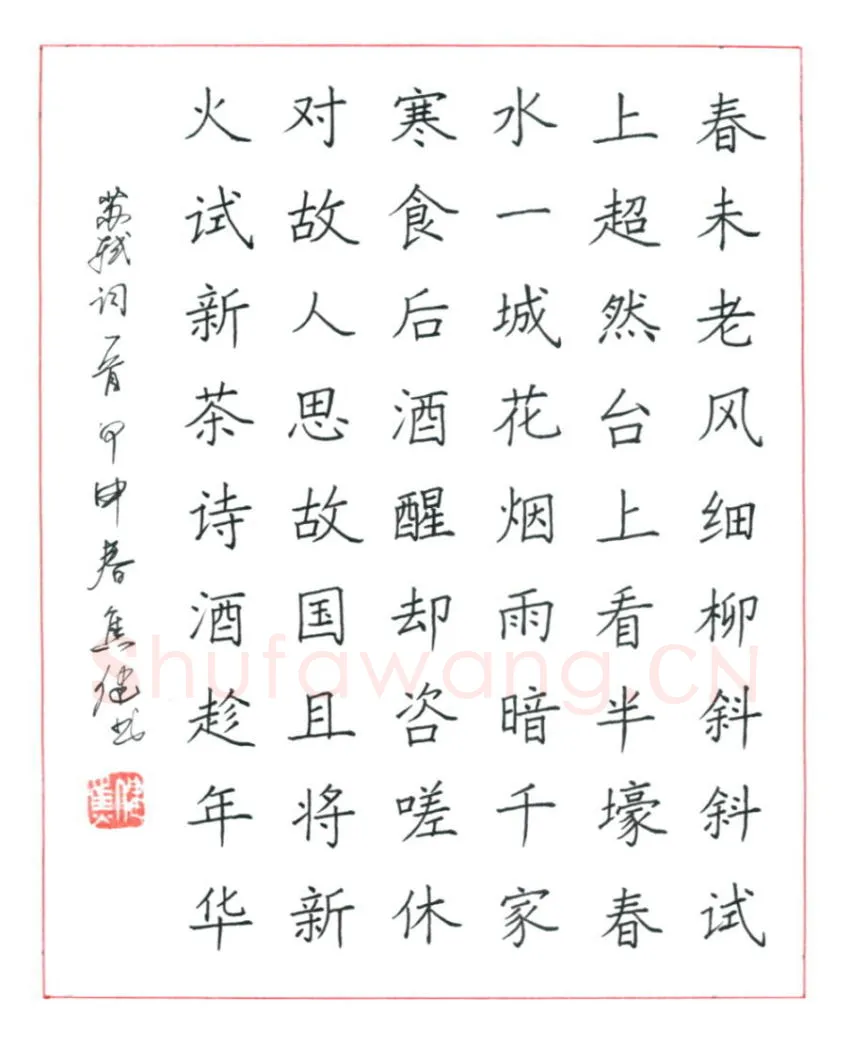 春未老风细柳斜斜试
上超然台上看半壕春
水一城花烟雨暗千家
寒食后酒醒却咨嗟休
对故人思故国且将新
火试新茶诗酒趁年华
苏轼词一首甲申春焦健书
焦健
Shufawang.CN